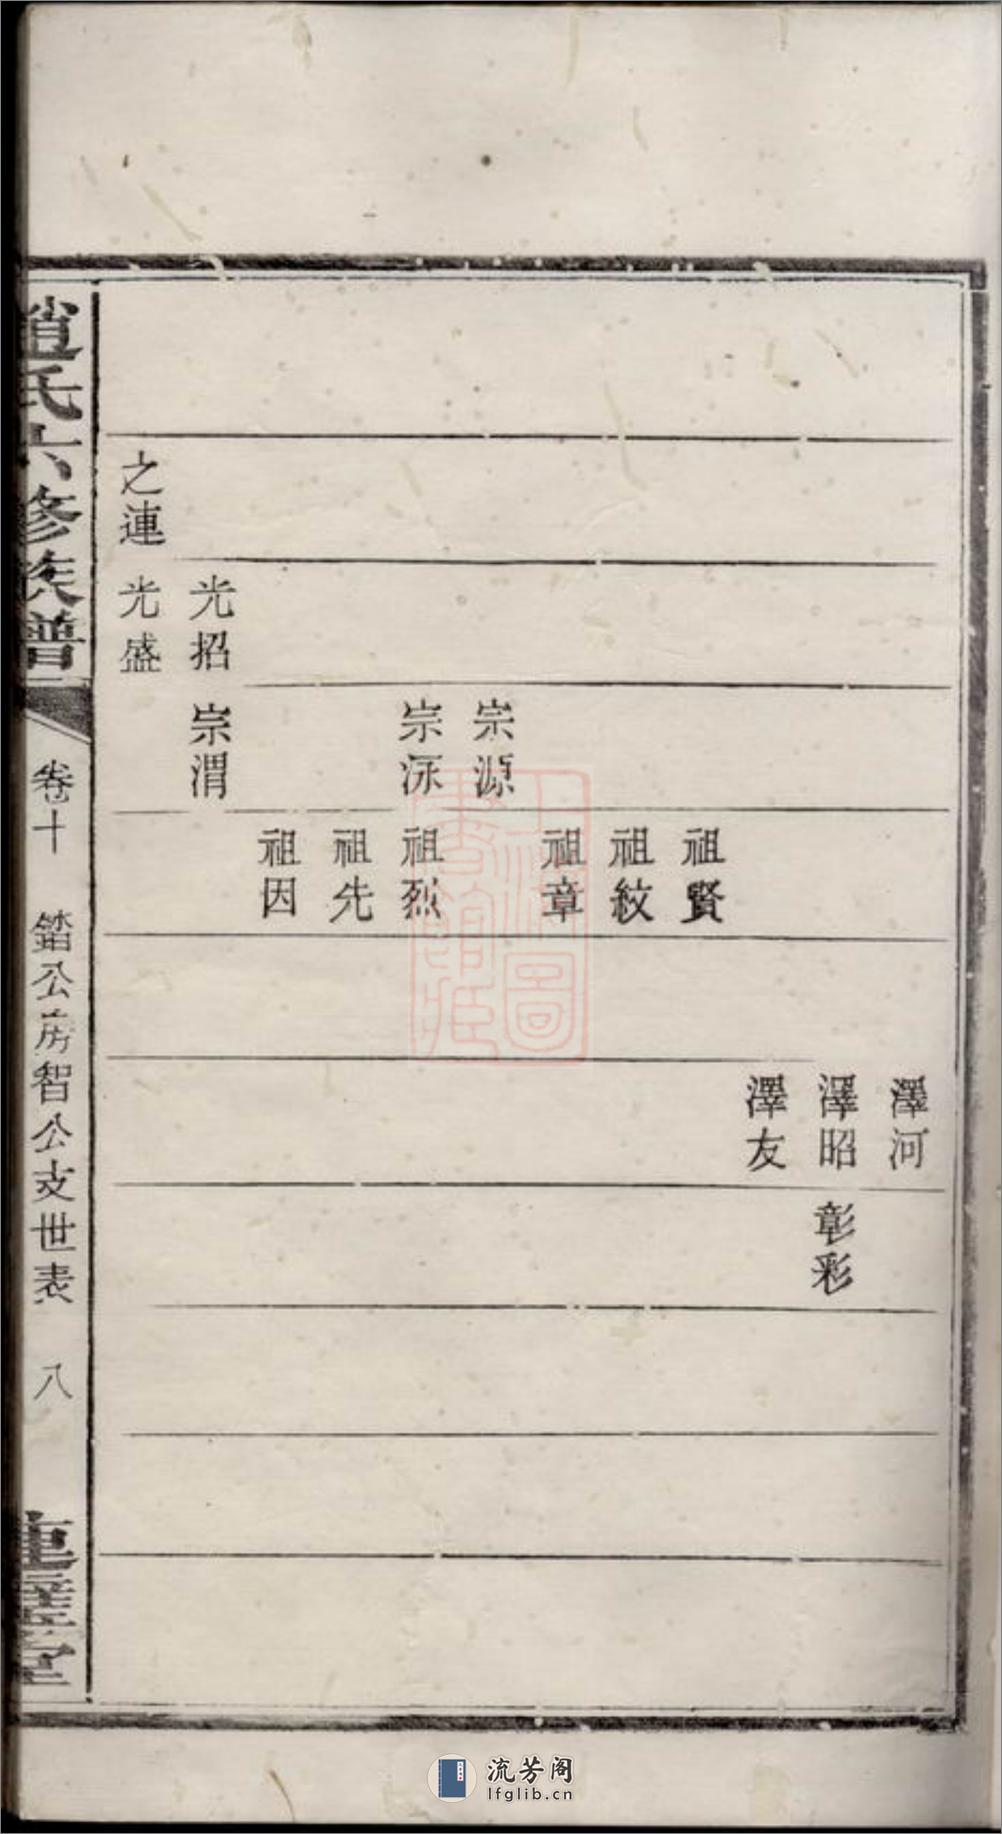 澤河
澤昭
彰彩
澤友
祖賢
祖紋
祖章
宗源
宗泳
祖烈
祖先
祖因
光招
宗渭
之連
光盛
趙氏六修族譜
卷十
公房智公支世表
八
堂
上海圖書館藏
流芳阁
lfglib.cn